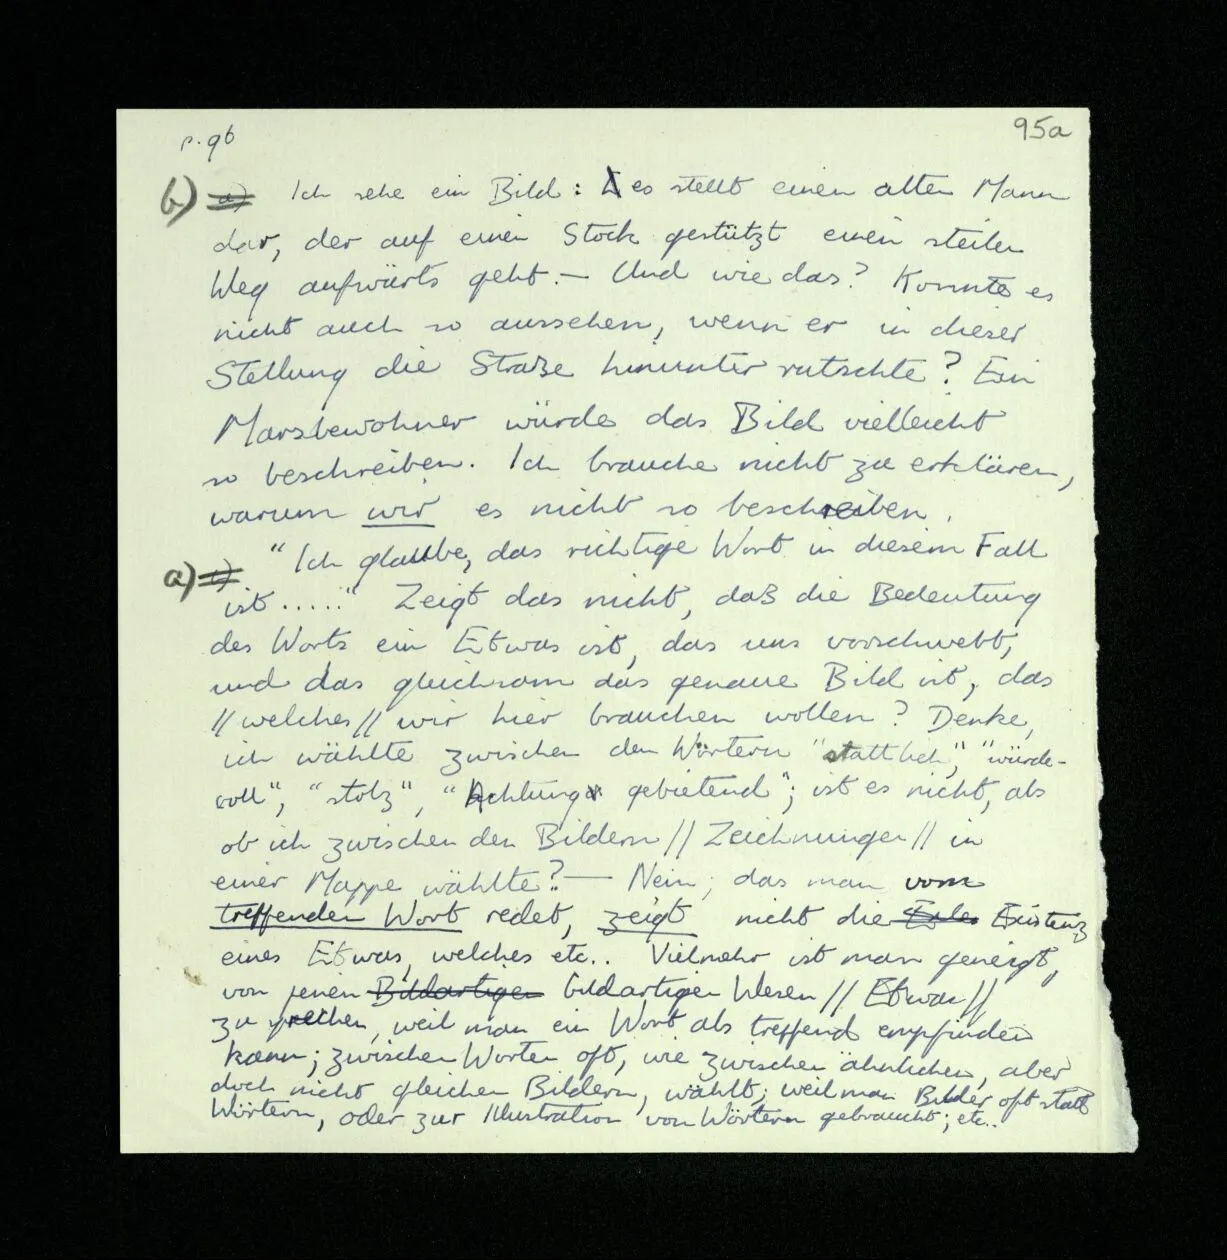 p. 96
95a
b) a) Ich sehe ein Bild: es stellt einen alten Mann
dar, der auf einen Stock gestützt einen steilen
Weg aufwärts geht. — Und wie das? Konnte es
nicht auch so aussehen, wenn er in dieser
Stellung die Straße hinunter rutschte? Ein
Marsbewohner würde das Bild vielleicht
so beschreiben. Ich brauche nicht zu erklären,
warum wir es nicht so beschreiben.
"Ich glaube, das richtige Wort in diesem Fall
a)
ist ....." Zeigt das nicht, daß die Bedeutung
des Worts ein Etwas ist, das uns vorschwebt,
und das gleichsam das genaue Bild ist, das
//welches// wir hier brauchen wollen? Denke,
ich wählte zwischen den Wörtern "stattlich", "würde-
voll", "stolz", "Achtung gebietend"; ist es nicht, als
ob ich zwischen den Bildern //Zeichnungen// in
einer Mappe wählte? — Nein; das man vom
treffenden Wort redet, zeigt nicht die Existenz
eines Etwas, welches etc.. Vielmehr ist man geneigt,
von jenen Bildartigen bildartigen Wesen //Etwas//
zu sprechen, weil man ein Wort als treffend empfinden
kann; zwischen Worten oft, wie zwischen ähnlichen, aber
doch nicht gleichen Bildern, wählt; weil man Bilder oft statt
Wörtern, oder zur Illustration von Wörtern gebraucht; etc..